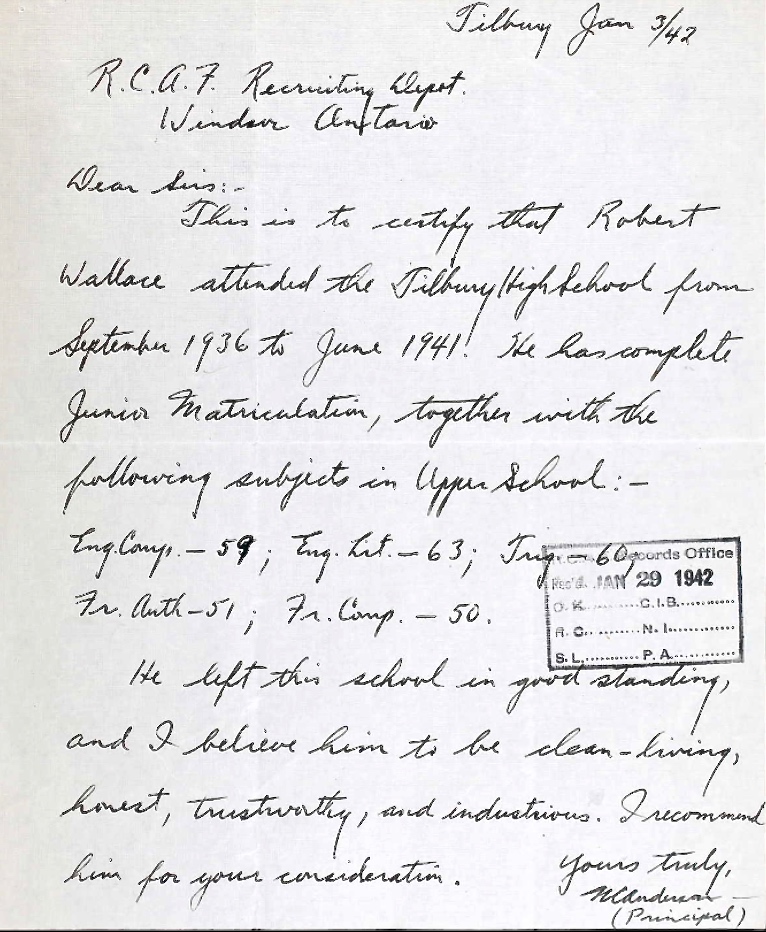 Tilbury Jan 3/42
R.C.A.F. Recruiting Depot.
Windsor Ontario
Dear Sirs:-
This is to certify that Robert
Wallace attended the Tilbury High School from
September 1936 to June 1941. He has complete
Junior Matriculation, together with the
following subjects in Upper School:-
Eng. Comp. - 59; Eng. Lit. - 63; Trig. - 60;
Fr. Auth - 51; Fr. Comp. - 50.
Records Office
Rec'd. JAN 29 1942
O.K. ........ C.I.B. ............
R.C. ........ N.I. .............
S.L. ........... P.A. .............
He left this school in good standing,
and I believe him to be clean-living,
honest, trustworthy, and industrious. I recommend
him for your consideration.
Yours truly,
Anderson
(Principal)